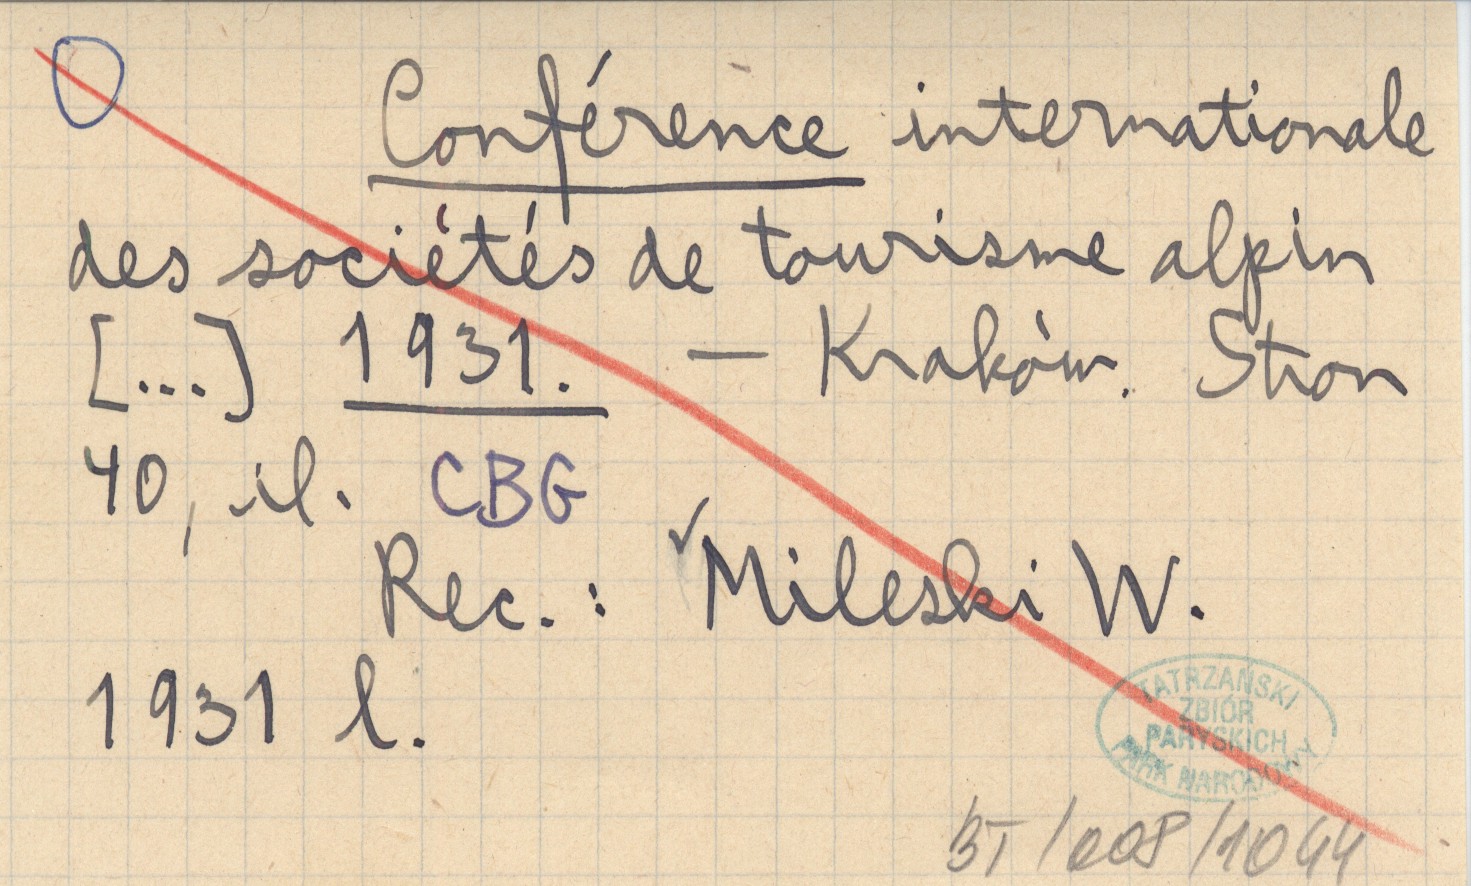 Conférence internationale
des sociétés de tourisme alpin
[...] 1931. — Kraków. Stron
40, il. CBG
Rec.: Mileski W.
1931 l.
TATRZAŃSKI
ZBIÓR
PARYSKICH
PARK NARODOWY
BT/008/1044